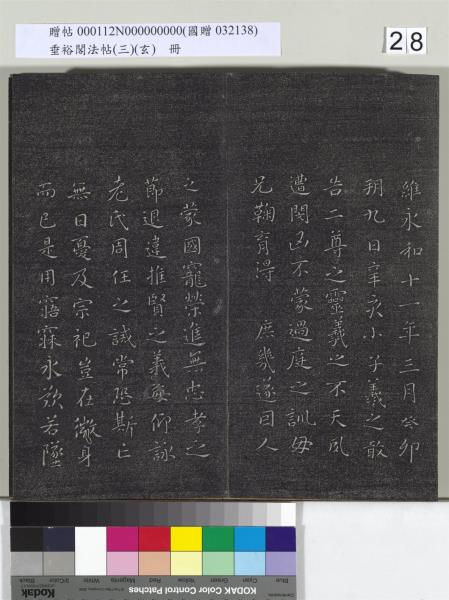 贈帖 000112N000000000(國贈 032138)
垂裕閣法帖(三)(玄) 冊
28
維永和十一年三月癸卯
朔九日辛亥小子羲之敢
告二尊之靈羲之不天夙
遭閔凶不蒙過庭之訓母
兄鞠育得 庶幾遂因人
之蒙國寵榮進無忠孝之
節退違推賢之義每仰詠
老氏周任之誡常恐斯亡
無日憂及宗祀豈在微身
而已是用寤寐永歎若墜
Blue Cyan Green Yellow Red Magenta White 3/Color Black
Kodak Color Control Patches
Kodak